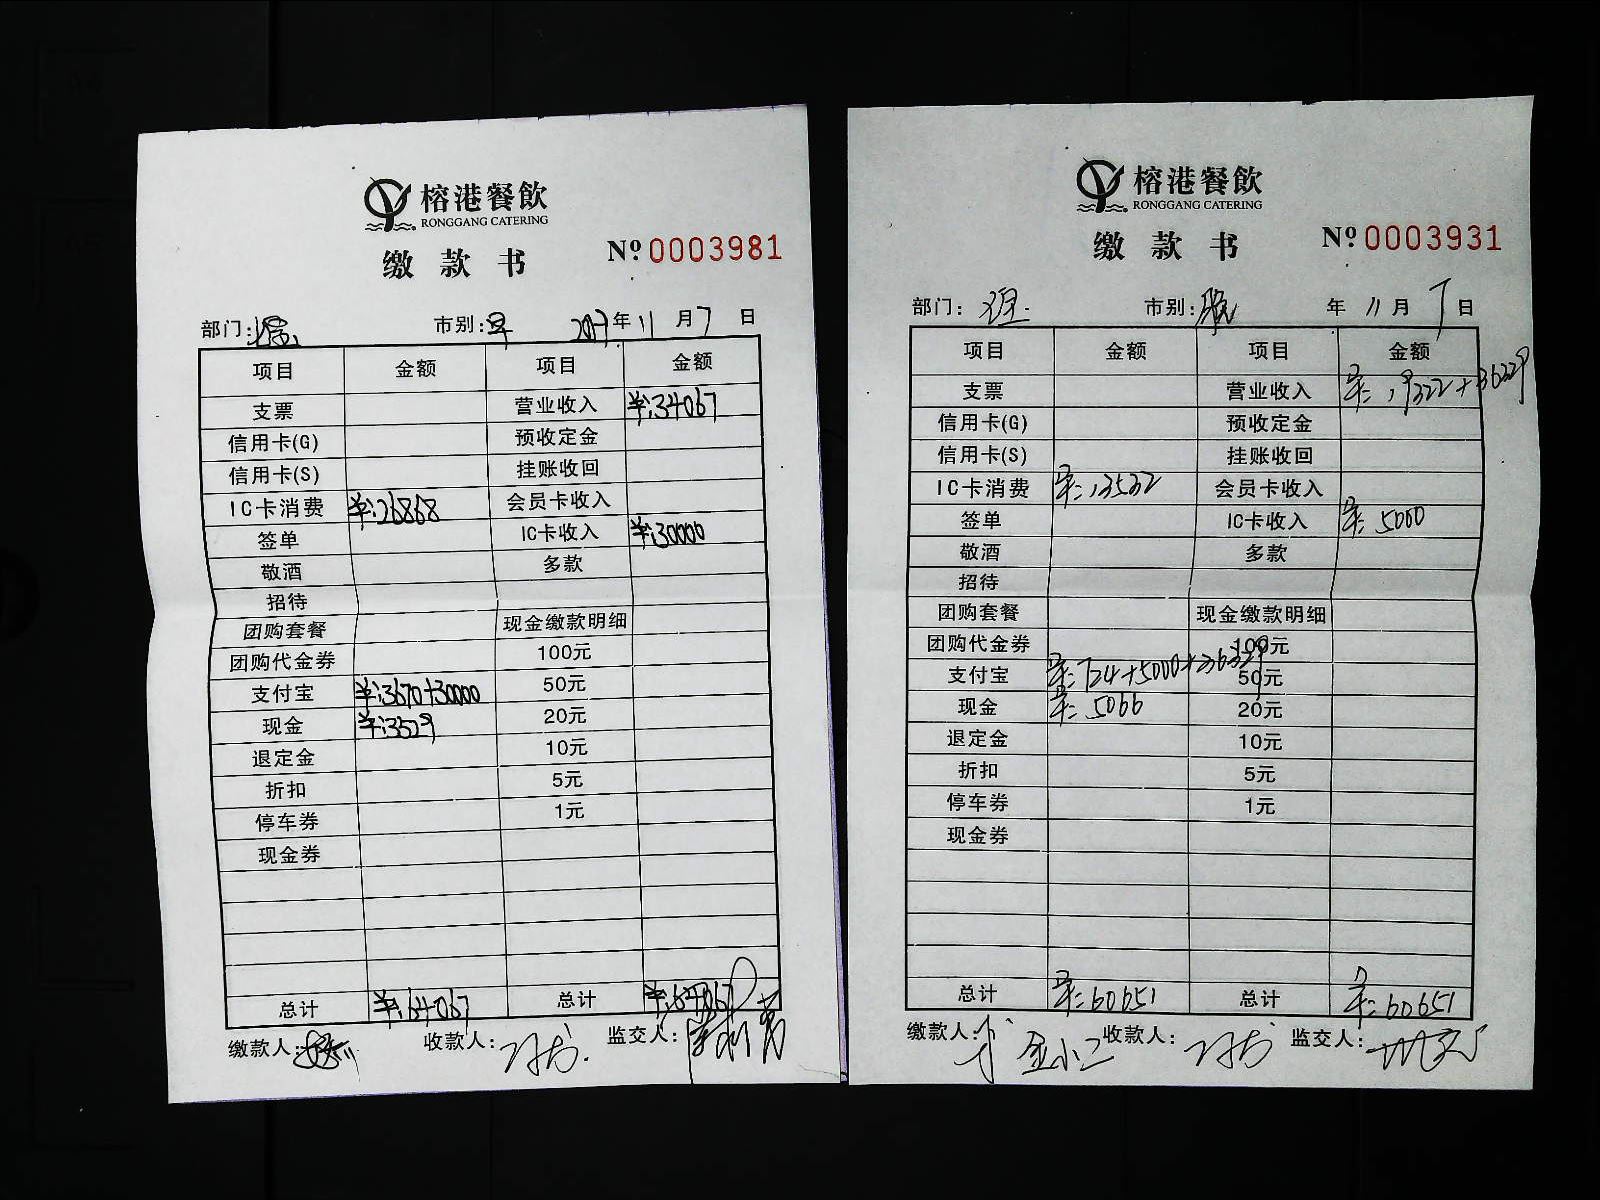 榕港餐飲
RONGGANG CATERING
缴款书
Nº 0003981
部门: 市别: 早 2017年11月7日
项目 金额 项目 金额
支票 营业收入 ¥:34067
信用卡(G) 预收定金
信用卡(S) 挂账收回
IC卡消费 ¥:26868 会员卡收入
签单 IC卡收入 ¥:30000
敬酒 多款
招待
团购套餐 现金缴款明细
团购代金券 100元
支付宝 ¥:3670+30000 50元
现金 ¥:3529 20元
退定金 10元
折扣 5元
停车券 1元
现金券
总计 ¥:64067 总计 ¥:64067
缴款人: 收款人: 监交人:
榕港餐飲
RONGGANG CATERING
缴款书
Nº 0003931
部门: 市别: 晚 年11月7日
项目 金额 项目 金额
支票 营业收入 ¥:19322+36329
信用卡(G) 预收定金
信用卡(S) 挂账收回
IC卡消费 ¥:13532 会员卡收入
签单 IC卡收入 ¥:5000
敬酒 多款
招待
团购套餐 现金缴款明细
团购代金券 100元
支付宝 ¥:724+5000+36329 50元
现金 ¥:5066 20元
退定金 10元
折扣 5元
停车券 1元
现金券
总计 ¥:60651 总计 ¥:60651
缴款人: 收款人: 监交人: